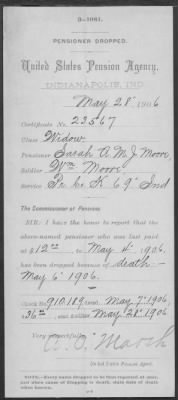 3—1081.
PENSIONER DROPPED.
United States Pension Agency,
INDIANAPOLIS, IND.
May 28" 1906
Certificate No. 22567
Class Widow
Pensioner Sarah A. M. J. Moore
Soldier Wm Moore
Service Pr. Co. K 69" Ind
The Commissioner of Pensions.
SIR: I have the honor to report that the
above-named pensioner who was last paid
at $12.00 to May 4, 1906,
has been dropped because of death—
May 6" 1906.
Check No 910,119, dated May 7" 1906,
$36.00 May 28" 1906
Very respectfully,
United States Pension Agent.
NOTE.—Every name dropped to be thus reported at once,
and when cause of dropping is death, state date of death
when known.